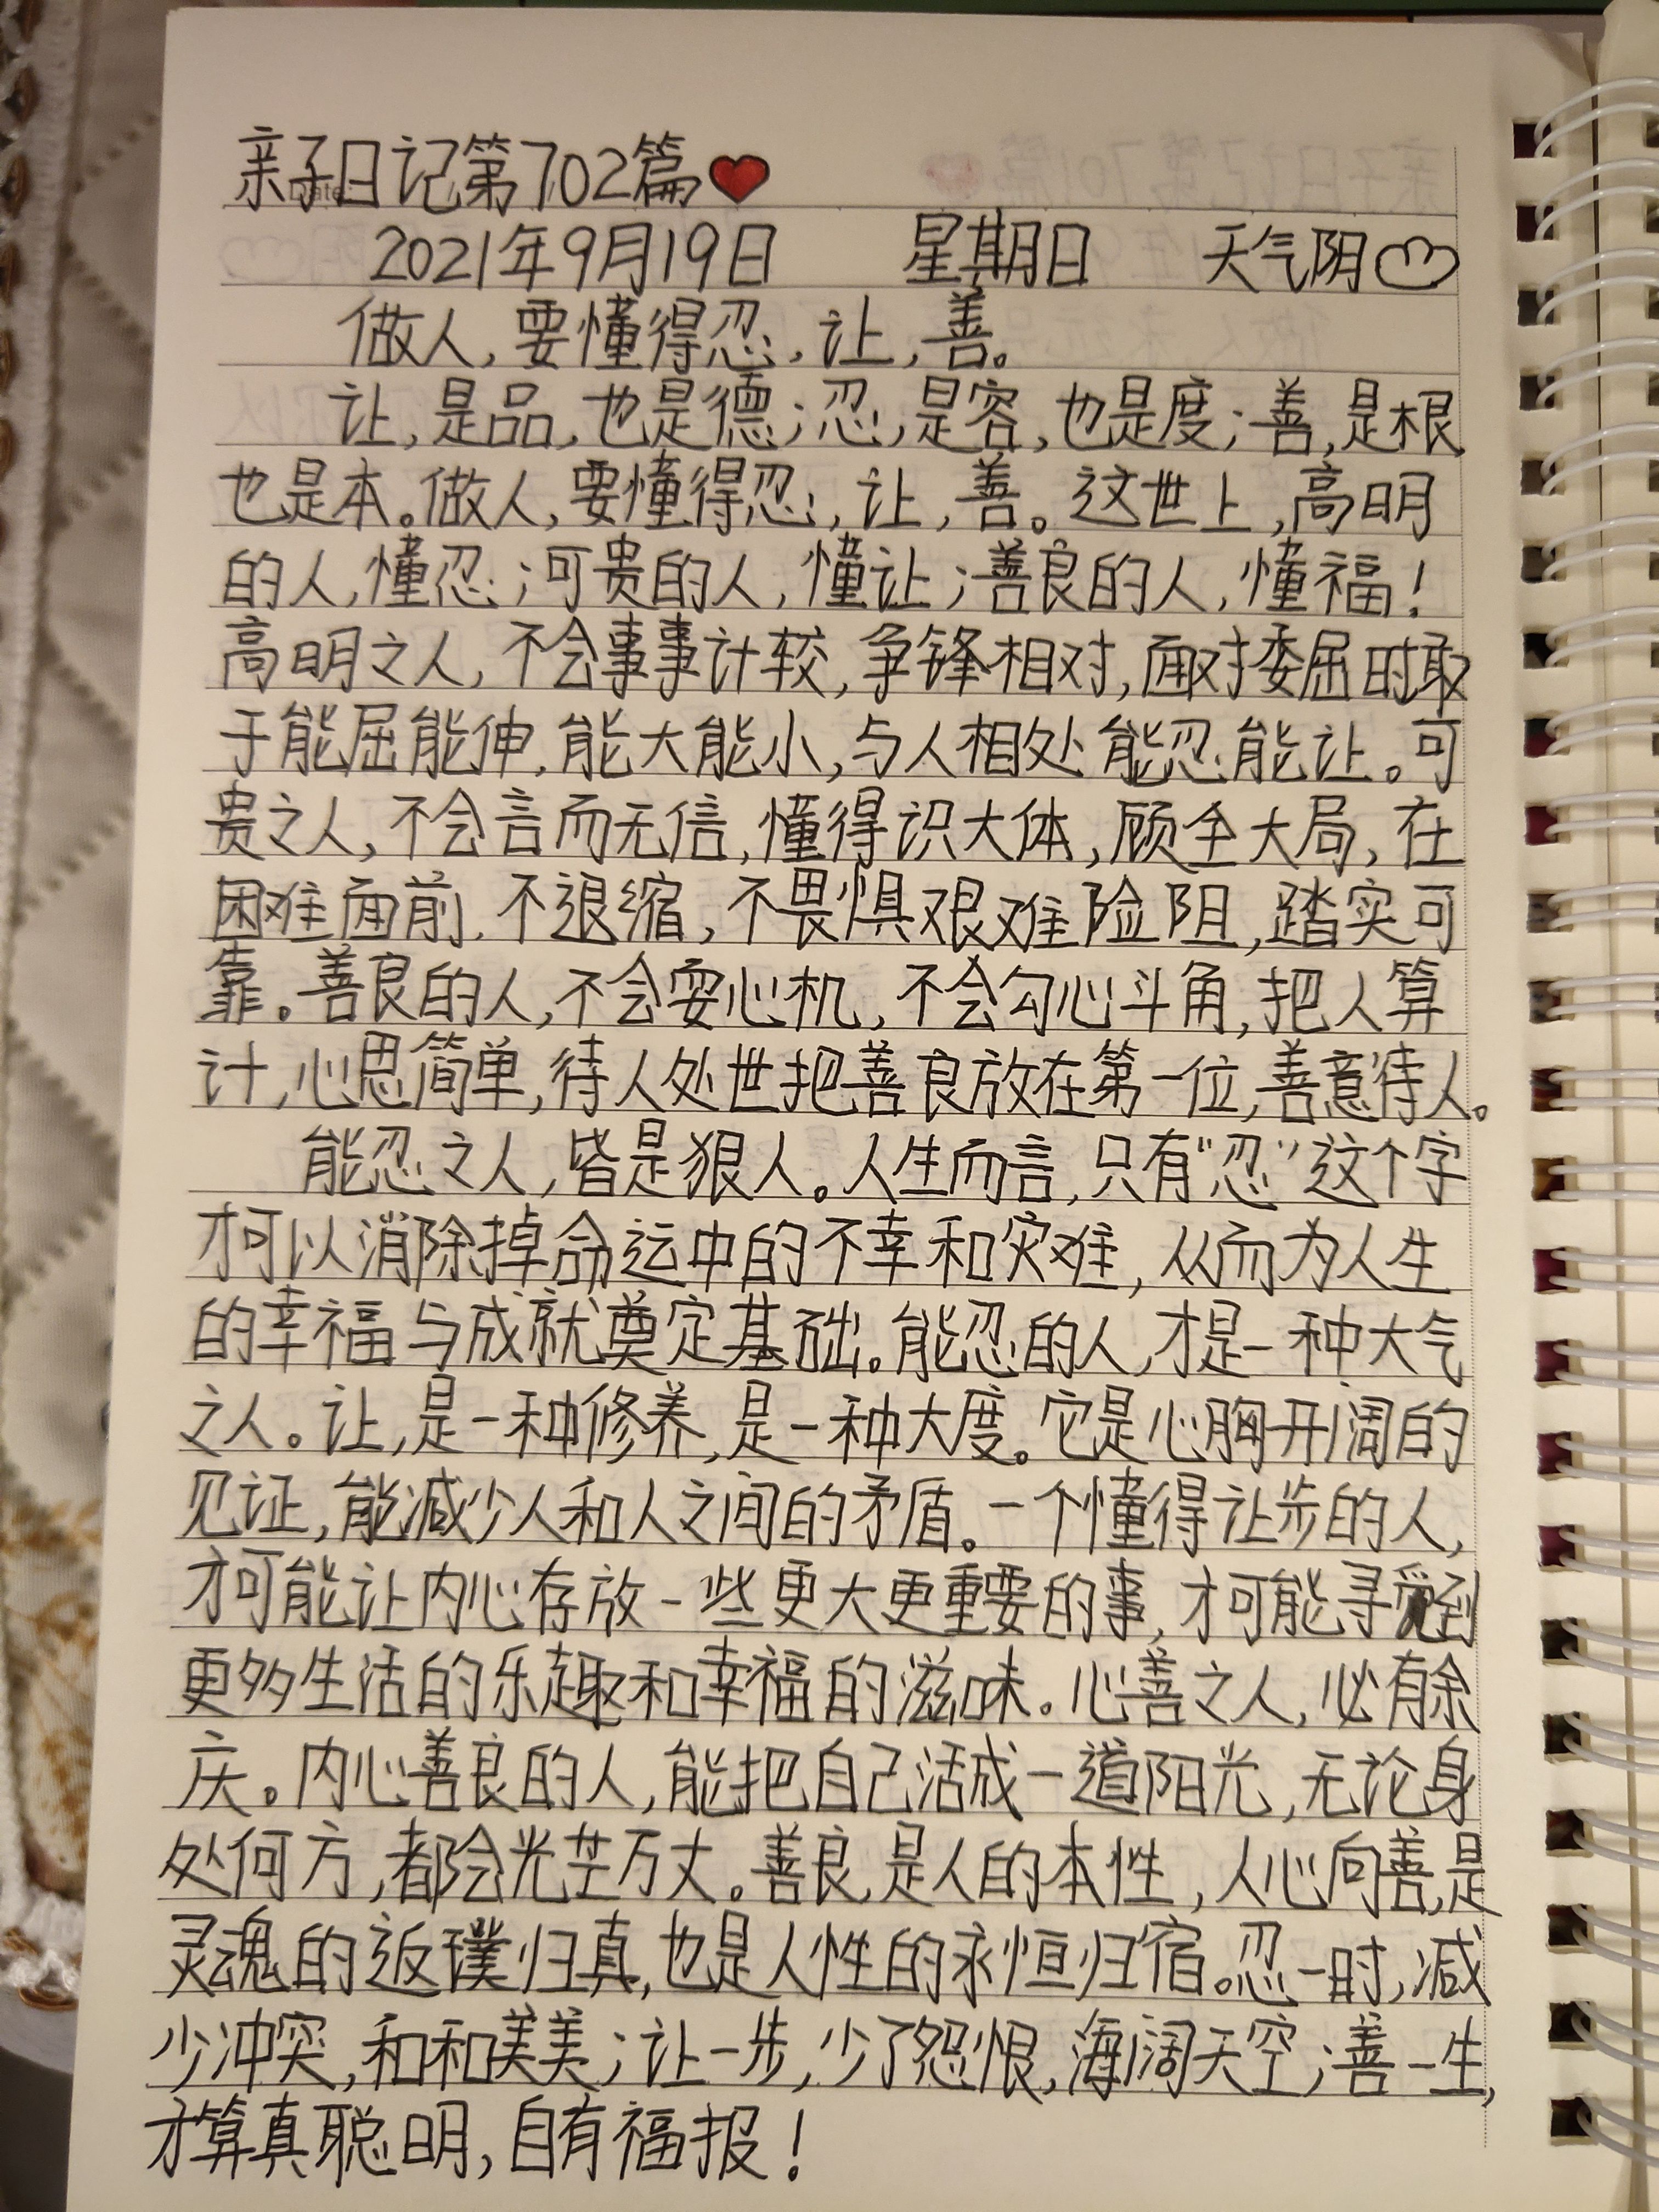 亲子日记第702篇❤
2021年9月19日 星期日 天气阴
做人,要懂得忍,让,善。
让,是品,也是德;忍,是容,也是度;善,是根
也是本。做人,要懂得忍,让,善。这世上,高明
的人,懂忍;可贵的人,懂让;善良的人,懂福!
高明之人,不会事事计较,争锋相对,面对委屈时敢
于能屈能伸,能大能小,与人相处能忍能让。可
贵之人,不会言而无信,懂得识大体,顾全大局,在
困难面前,不退缩,不畏惧艰难险阻,踏实可
靠。善良的人,不会耍心机,不会勾心斗角,把人算
计,心思简单,待人处世把善良放在第一位,善意待人。
能忍之人,皆是狠人。人生而言,只有“忍”这个字
才可以消除掉命运中的不幸和灾难,从而为人生
的幸福与成就奠定基础。能忍的人,才是一种大气
之人。让,是一种修养,是一种大度。它是心胸开阔的
见证,能减少人和人之间的矛盾。一个懂得让步的人,
才可能让内心存放一些更大更重要的事,才可能寻觅到
更多生活的乐趣和幸福的滋味。心善之人,必有余
庆。内心善良的人,能把自己活成一道阳光,无论身
处何方,都会光芒万丈。善良,是人的本性,人心向善,是
灵魂的返璞归真,也是人性的永恒归宿。忍一时,减
少冲突,和和美美;让一步,少了怨恨,海阔天空;善一生,
才算真聪明,自有福报!